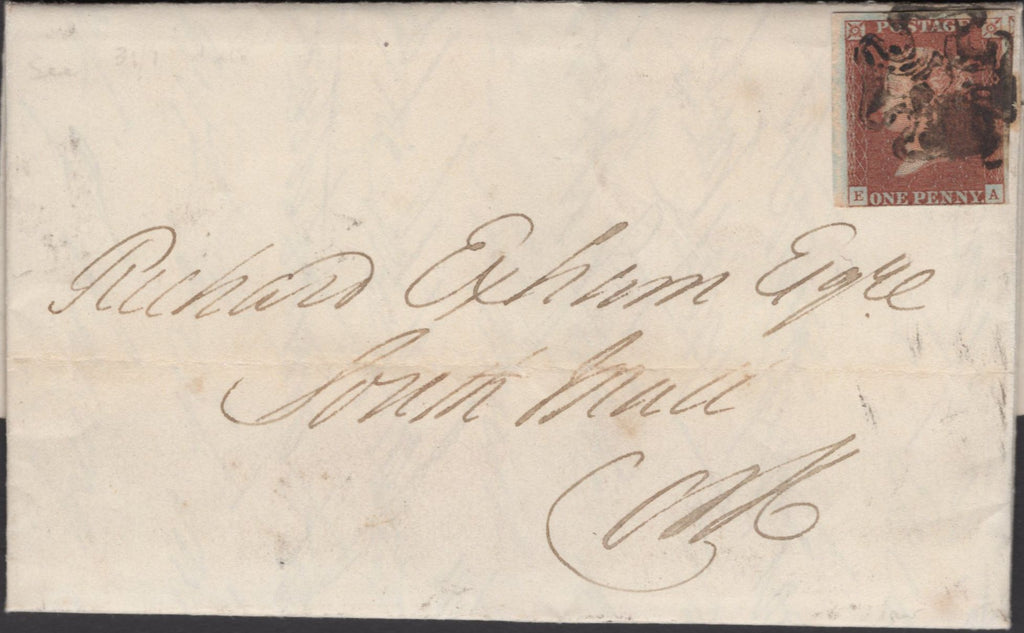 POSTAGE
E ONE PENNY. A
Richard Exham Esqre
South Mall
Cork